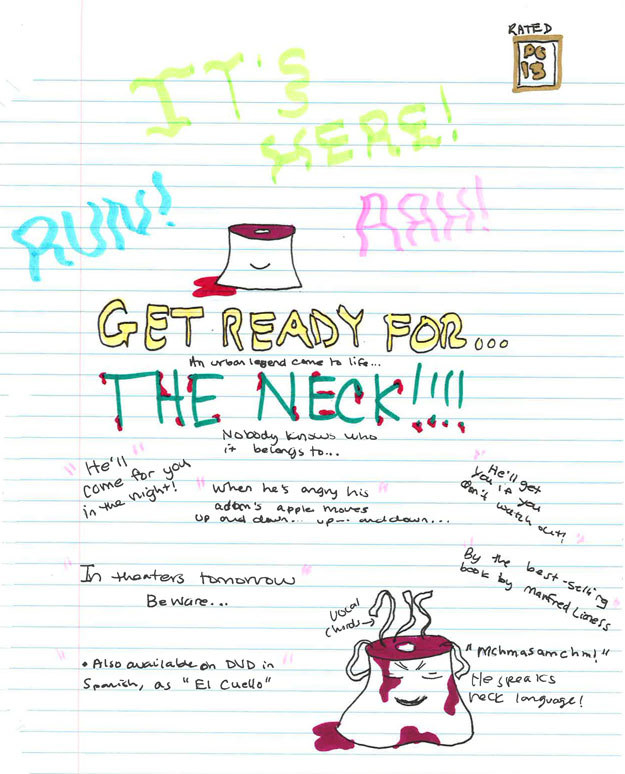 RATED
PG
13
IT'S
HERE!
RUN!
AAH!
GET READY FOR...
An urban legend come to life...
THE NECK!!!!
Nobody knows who
it belongs to...
"He'll
come for you
in the night!"
"When he's angry his
adam's apple moves
up and down... up... and down..."
"He'll get
you if you
don't watch out!"
"In theaters tomorrow"
Beware...
"By the best-selling
book by Manfred Lioness"
• Also available on DVD in
Spanish, as "El Cuello"
vocal
chords→
"Mchmasamchm!"
He speaks
neck language!